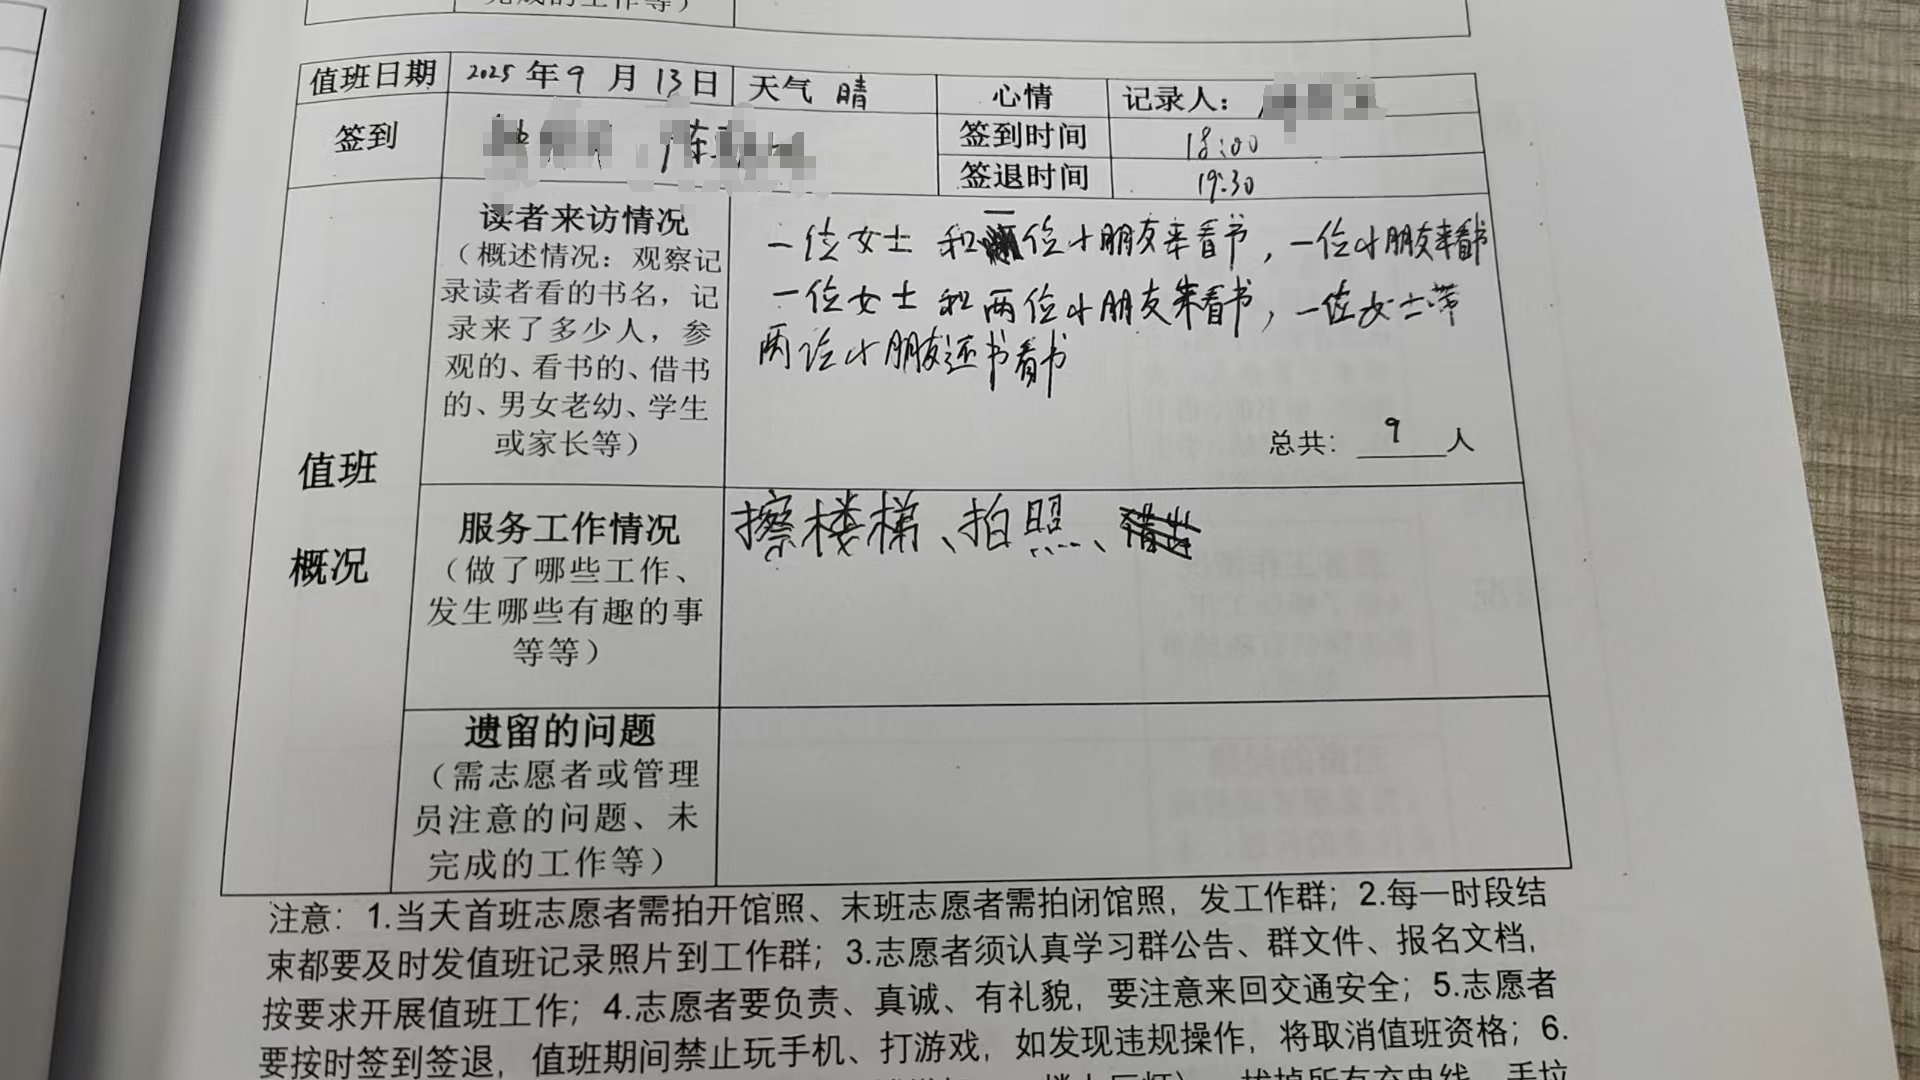 完成的工作等）
值班日期 2025年9月13日 天气 晴 心情 记录人：
签到 签到时间 18:00
签退时间 19:30
值班概况
读者来访情况
（概述情况：观察记
录读者看的书名，记
录来了多少人，参
观的、看书的、借书
的、男女老幼、学生
或家长等）
一位女士和一位小朋友来看书，一位小朋友来看书
一位女士和两位小朋友来看书，一位女士带
两位小朋友还书看书
总共：9人
服务工作情况
（做了哪些工作、
发生哪些有趣的事
等等）
擦楼梯、拍照、
遗留的问题
（需志愿者或管理
员注意的问题、未
完成的工作等）
注意：1.当天首班志愿者需拍开馆照、末班志愿者需拍闭馆照，发工作群；2.每一时段结
束都要及时发值班记录照片到工作群；3.志愿者须认真学习群公告、群文件、报名文档，
按要求开展值班工作；4.志愿者要负责、真诚、有礼貌，要注意来回交通安全；5.志愿者
要按时签到签退，值班期间禁止玩手机、打游戏，如发现违规操作，将取消值班资格；6.